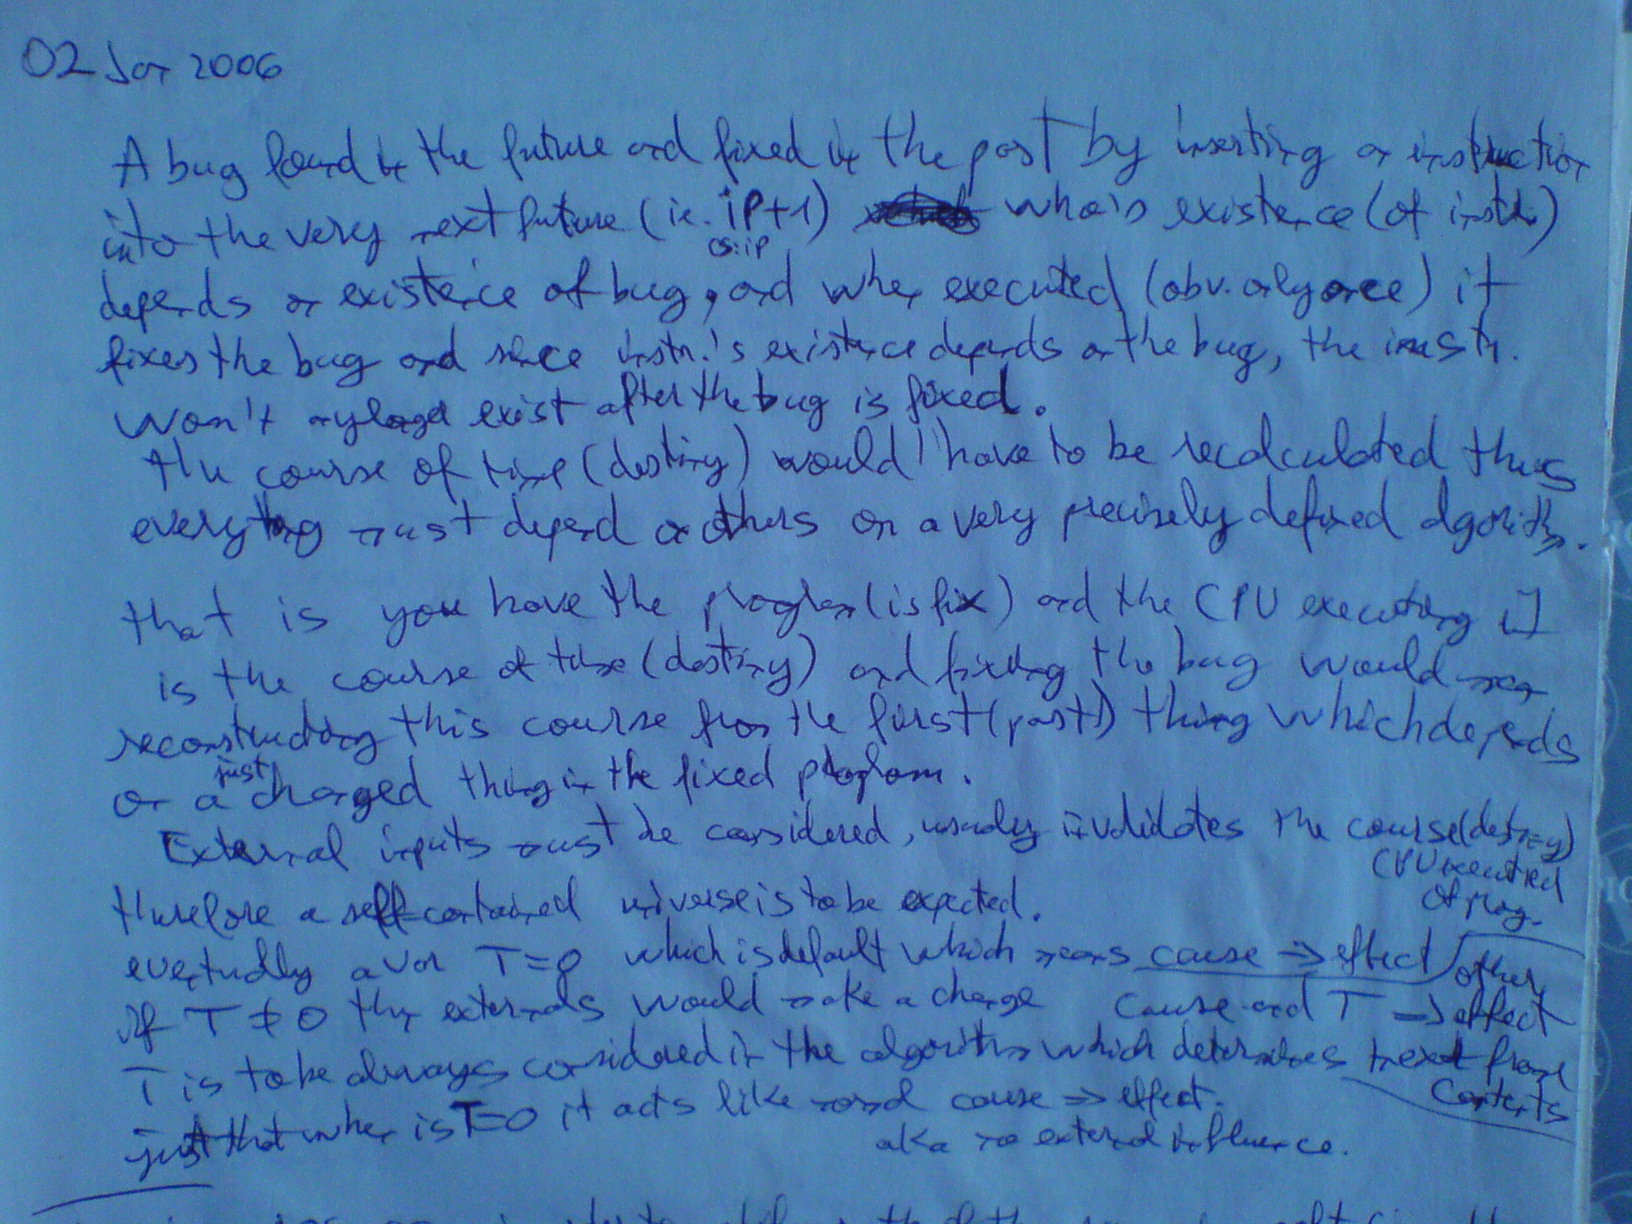 02 Jan 2006
A bug found in the future and fixed in the past by inserting an instruction
into the very next future (ie. ip+1) who's existence (of instr.)
cs:ip
depends on existence of bug, and when executed (obv. only once) it
fixes the bug and since instr.'s existence depends on the bug, the instr.
won't anylonger exist after the bug is fixed.
the course of time (destiny) would have to be recalculated thus
everything must depend on others on a very precisely defined algorithm.
that is you have the program (is fix) and the CPU executing it
is the course of time (destiny) and fixing the bug would
reconstructing this course from the first (past) thing which depends
on a just changed thing in the fixed program.
External inputs must be considered, usually invalidates the course (destiny)
CPU executed
of prog.
therefore a self-contained universe is to be expected.
eventually a var T=0 which is default which means cause => effect
other
if T ≠ 0 then externals would make a change cause and T => effect
T is to be always considered in the algorithm which determines next frame
contents
just that when is T=0 it acts like normal cause => effect.
aka no external influence.